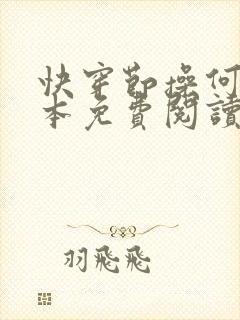 快穿節操何
本免費閱讀
羽飛飛